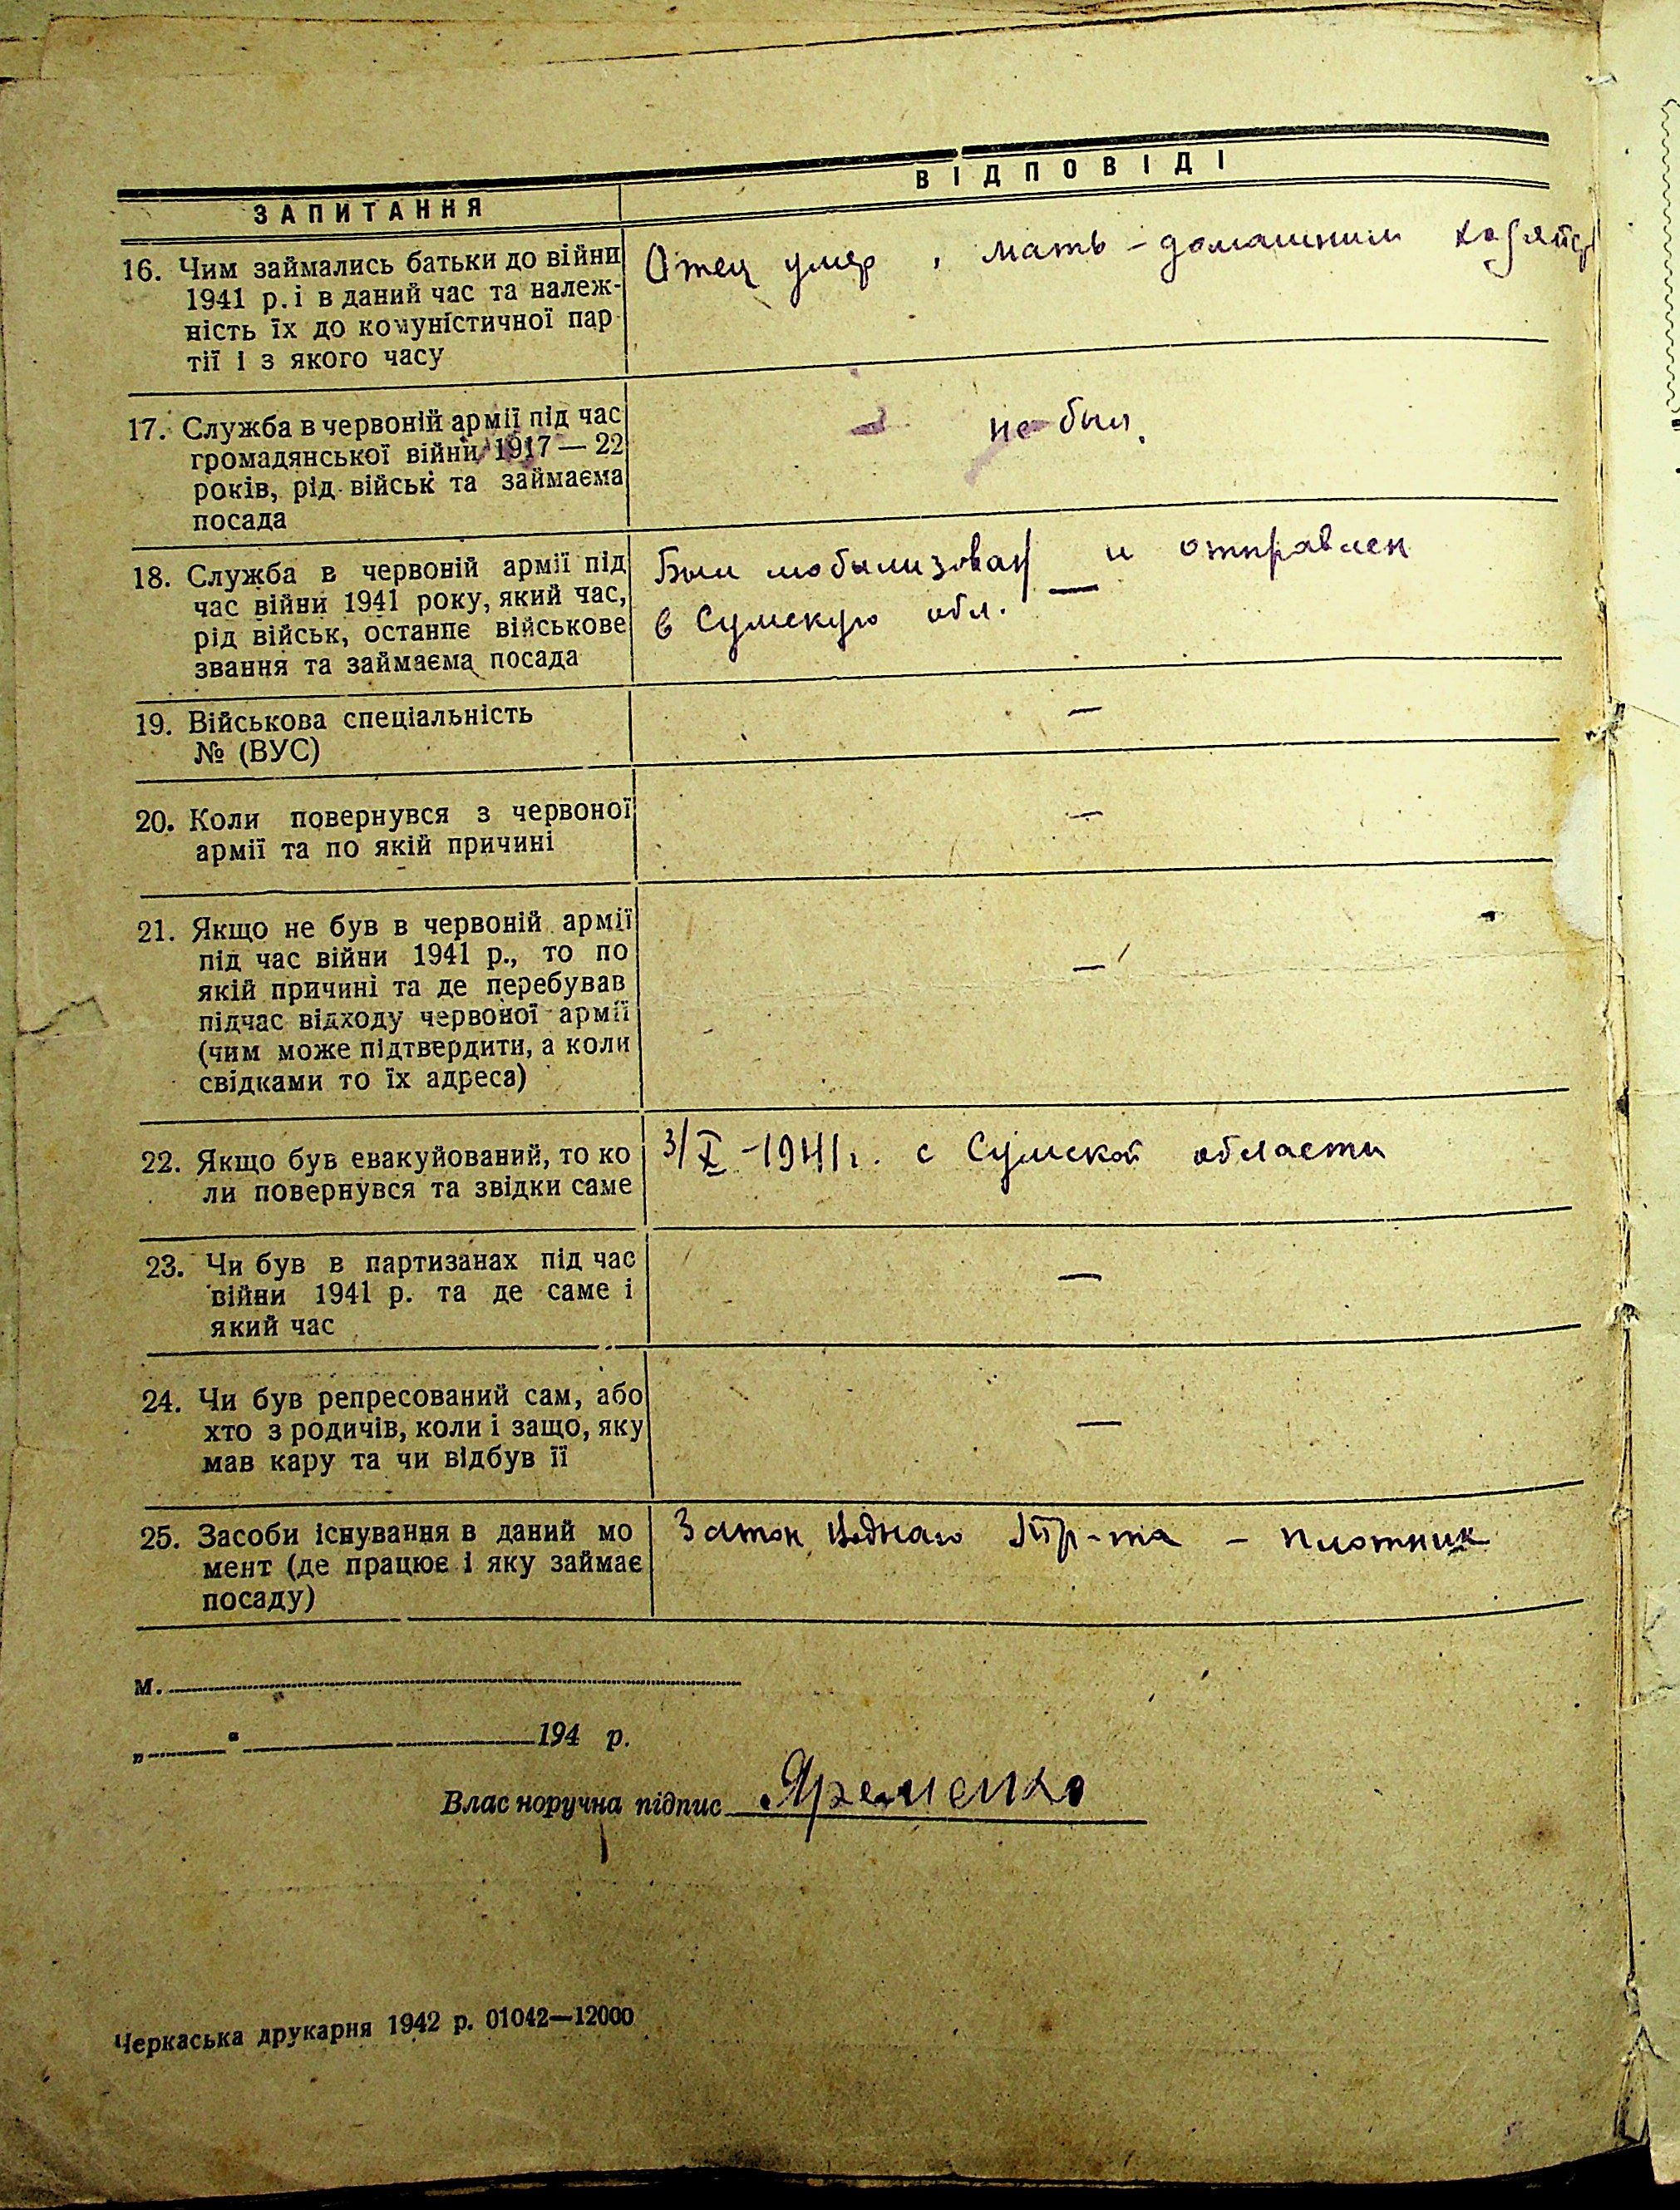 ЗАПИТАННЯ
ВІДПОВІДІ
16. Чим займались батьки до війни
1941 р. і в даний час та належ-
ність їх до комуністичної пар
тії і з якого часу
Отец умер, мать - домашним хозяйст
17. Служба в червоній армії під час
громадянської війни 1917 — 22
років, рід військ та займаєма
посада
не был.
18. Служба в червоній армії під
час війни 1941 року, який час,
рід військ, останнє військове
звання та займаєма посада
Был мобилизован — и отправлен
в Сумскую обл.
19. Військова спеціальність
№ (ВУС)
—
20. Коли повернувся з червоної
армії та по якій причині
—
21. Якщо не був в червоній армії
під час війни 1941 р., то по
якій причині та де перебував
підчас відходу червоної армії
(чим може підтвердити, а коли
свідками то їх адреса)
—
22. Якщо був евакуйований, то ко
ли повернувся та звідки саме
3/X -1941 г. с Сумской области
23. Чи був в партизанах під час
війни 1941 р. та де саме і
який час
—
24. Чи був репресований сам, або
хто з родичів, коли і защо, яку
мав кару та чи відбув її
—
25. Засоби існування в даний мо
мент (де працює і яку займає
посаду)
Затон Водного Тр-та - плотник
м.
„ “ 194 р.
Власноручна підпис Яременко
Черкаська друкарня 1942 р. 01042—12000